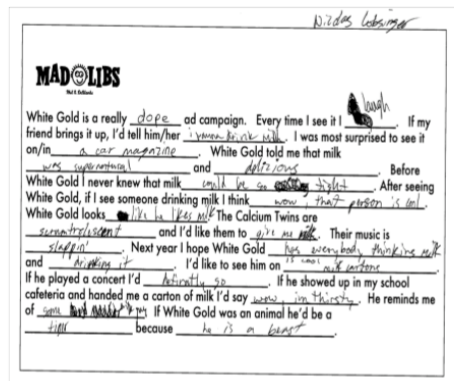 Nicolas Lobsinger
MAD LIBS
White Gold is a really dope ad campaign. Every time I see it I laugh. If my
friend brings it up, I'd tell him/her i wanna drink milk. I was most surprised to see it
on/in a car magazine. White Gold told me that milk
was supernatural and delicious. Before
White Gold I never knew that milk could be so tight. After seeing
White Gold, if I see someone drinking milk I think wow, that person is cool.
White Gold looks like he likes milk The Calcium Twins are
and I'd like them to give me milk. Their music is
slappin'. Next year I hope White Gold has everybody thinking milk is cool
and drinking it. I'd like to see him on milk cartons
If he played a concert I'd definatly go. If he showed up in my school
cafeteria and handed me a carton of milk I'd say wow, im thirsty. He reminds me
of some. If White Gold was an animal he'd be a
tiger because he is a beast.